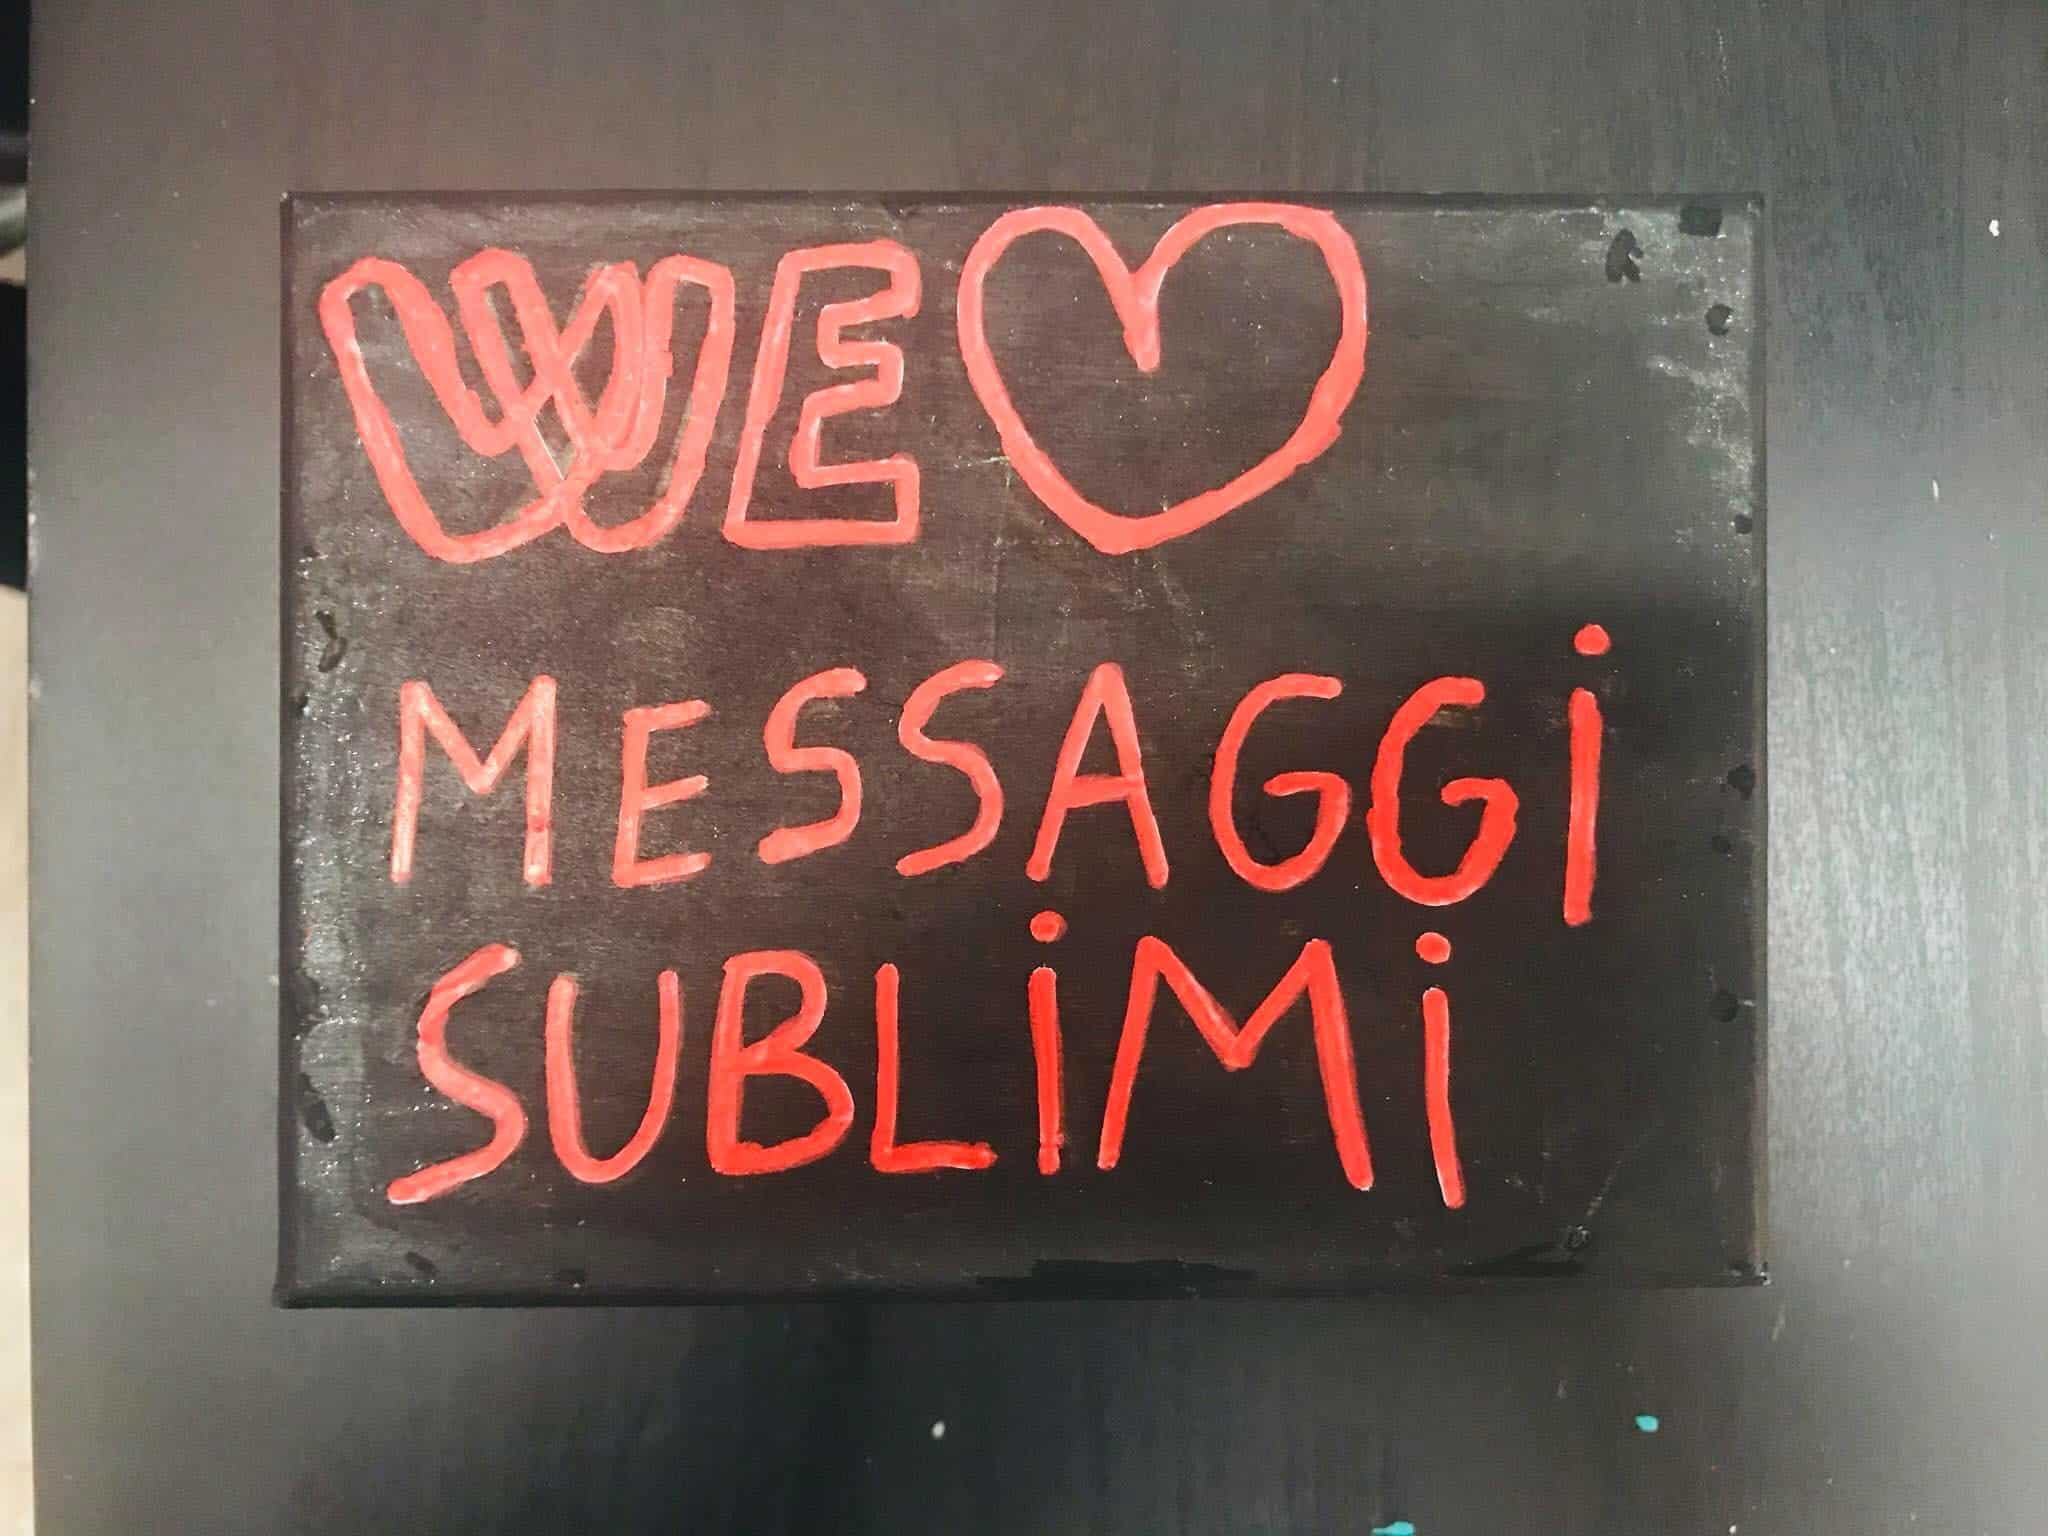 WE ♡
MESSAGGi
SUBLiMi